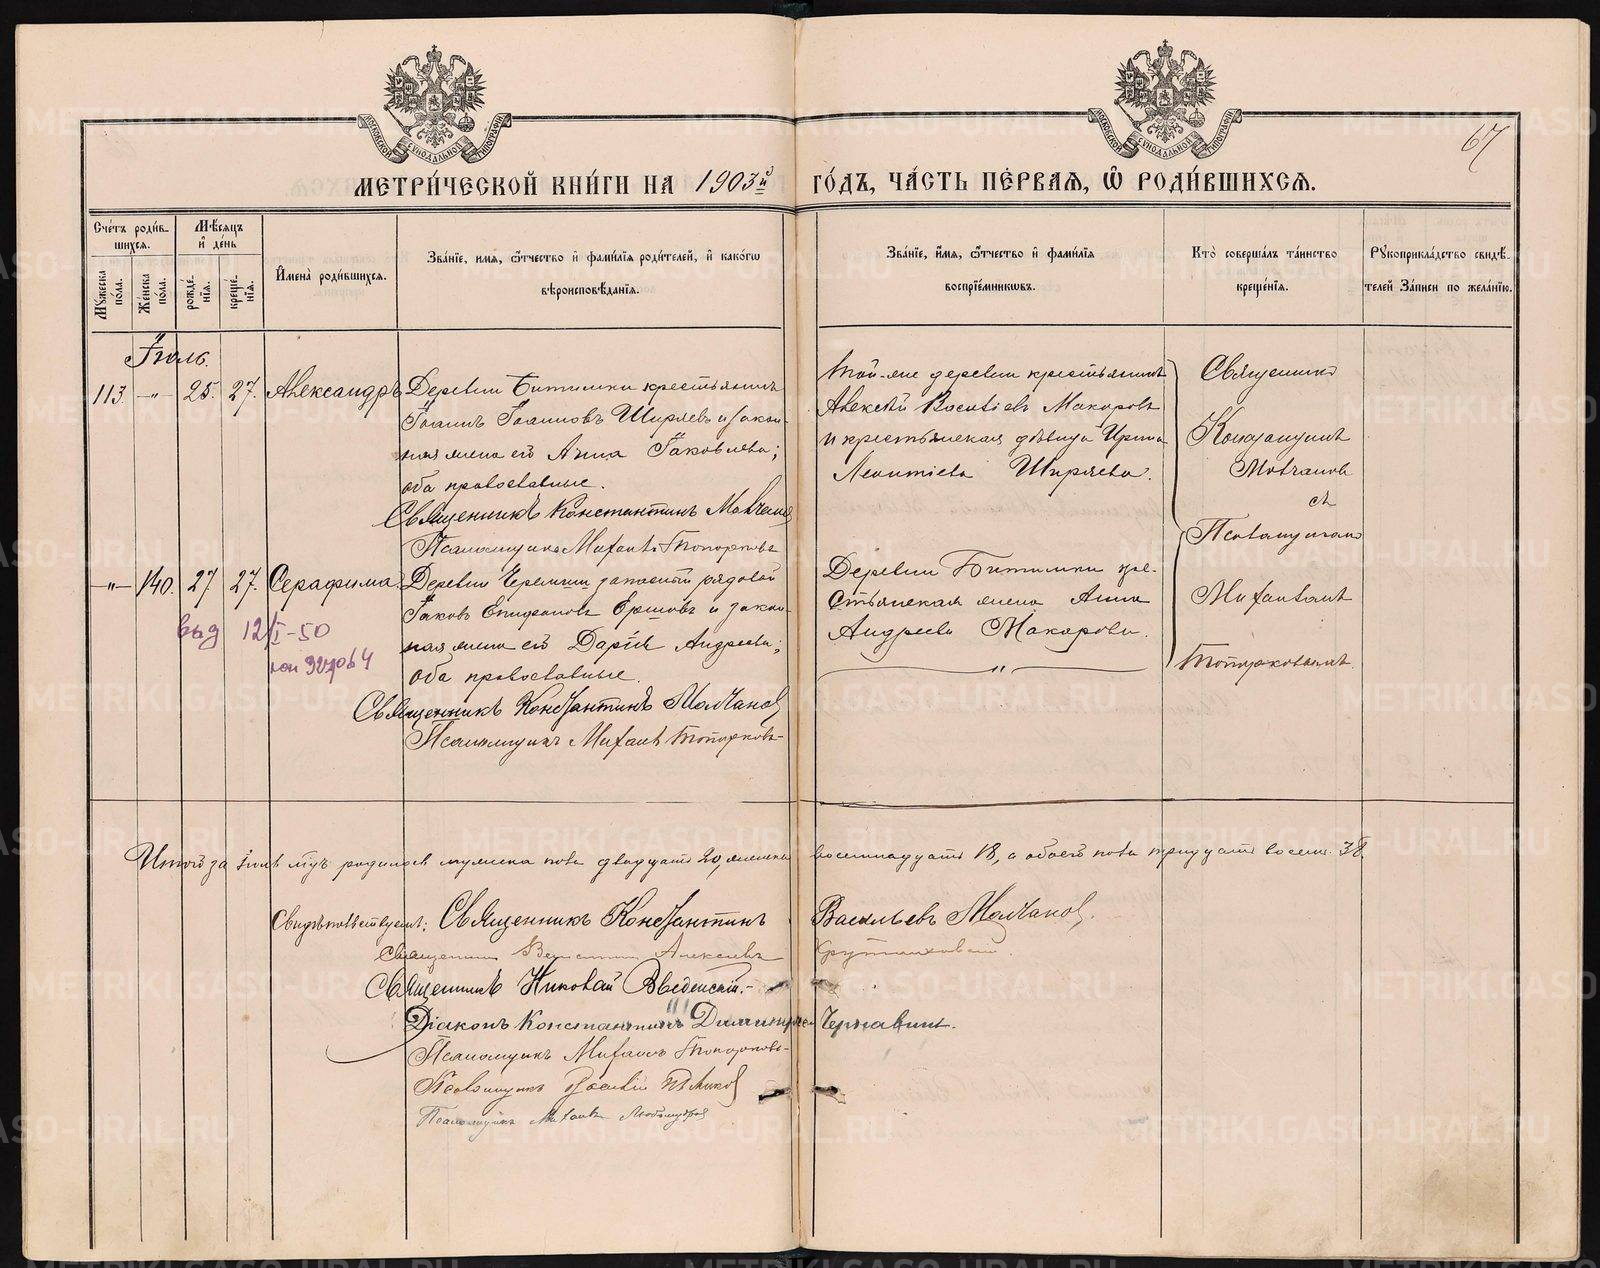 67
МЕТРИ́ЧЕСКОЙ КНИ́ГИ НА 1903й ГО́ДЪ, ЧА́СТЬ ПЕ́РВАѦ, Ѽ РОДИ́ВШИХСѦ.
Сче́тъ роди́в-
шихсѧ.
Мѣ́сѧцъ
и҆ де́нь
Мꙋжеска по́ла.
Же́нска по́ла.
рожде́-
нїѧ.
креще́-
нїѧ.
И҆мена̀ роди́вшихсѧ.
Зва́нїе, и҆́мѧ, ѻ҆́тчество и҆ фамѝлїѧ роди́телей, и҆ како́гѡ
вѣроисповѣ́данїѧ.
Зва́нїе, и҆́мѧ, ѻ҆́тчество и҆ фамѝлїѧ
воспрїе́мникѡвъ.
Кто̀ соверша́лъ та́инство
креще́нїѧ.
Рꙋкоприкла́дство свидѣ́-
телей за́писи по жела́нїю.
Іюль.
113. -"- 25. 27. Александръ
Деревни Битимки крестьянинъ
Іоаннъ Іоанновъ Ширяевъ и закон-
ная жена его Анна Іаковлева;
оба православные.
Священникъ Константинъ Молчановъ
Псаломщикъ Михаилъ Топорковъ
Той-же деревни крестьянинъ
Алексѣй Васильевъ Макаровъ
и крестьянская дѣвица Ирина
Леонтіева Ширяева.
Священникъ
Константинъ
Молчановъ
съ
Псаломщикомъ
Михаиломъ
Топорковымъ.
-"- 140. 27 27. Серафима
Деревни Черемши запасный рядовой
Іаковъ Епифановъ Ершовъ и закон-
ная жена его Дарія Андреева;
оба православные.
Священникъ Константинъ Молчановъ
Псаломщикъ Михаилъ Топорковъ
Деревни Битимки кре-
стьянская жена Анна
Андреева Макарова.
"
выд 12/I-50
Итого за Іюль м-цъ родилось мужска пола двадцать 20, женска восемнадцать 18, а обоего пола тридцать восемь 38.
Свидѣтельствуемъ: Священникъ Константинъ Васильевъ Молчановъ.
Священникъ Алексѣевъ
Священникъ Николай Введенскій.-
Діаконъ Константинъ Чернавинъ.
Псаломщикъ Михаилъ Топорковъ
Псаломщикъ Василій
Псаломщикъ Михаилъ